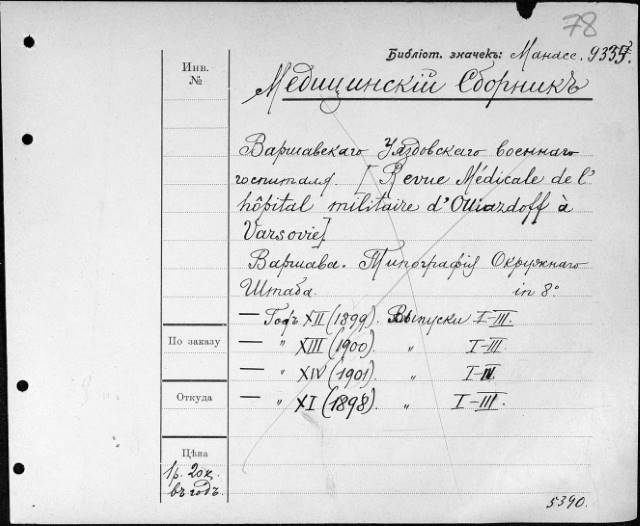 78
Библіот. значекъ: Манасс. 9335.
Инв.
№
Медицинскій Сборникъ
Варшавскаго Уяздовскаго военнаго
госпиталя. [Revue Médicale de l'
hôpital militaire d'Ouiazdoff à
Varsovie].
Варшава. Типографія Окружнаго
Штаба. in 8°
— Годъ XII (1899). Выпуски I-III.
По заказу
— " XIII (1900). " I-III.
— " XIV (1901) " I-IV.
Откуда
— " XI (1898). " I-III.
Цѣна
1р. 20к.
въ годъ.
5390.